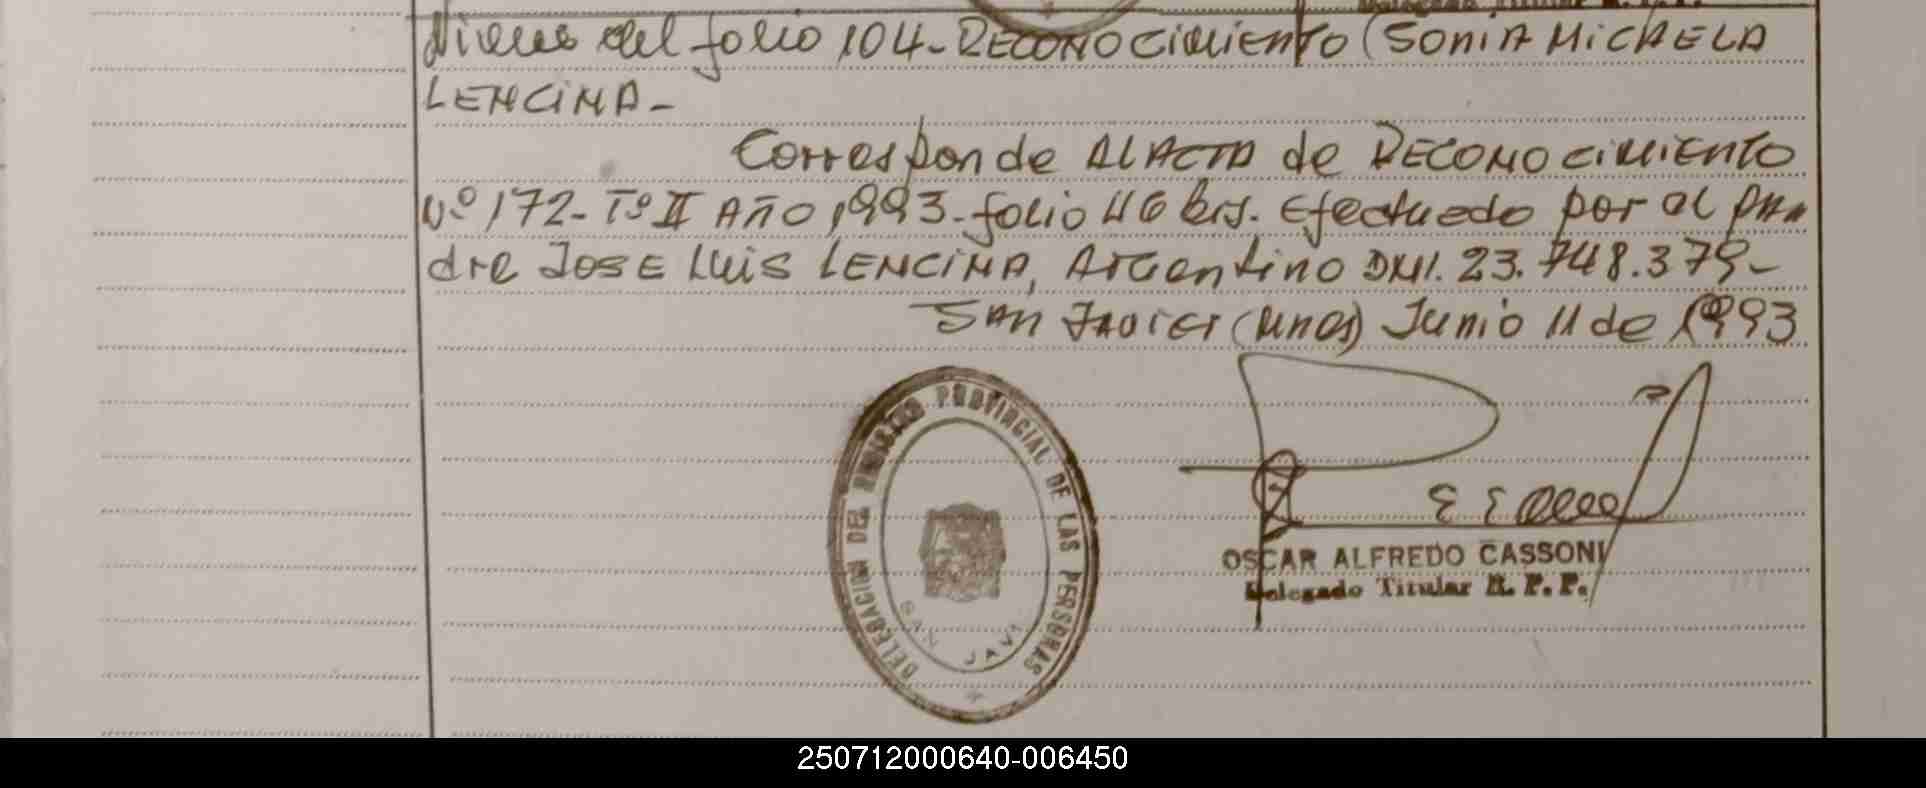 Viene del folio 104- RECONOCIMIENTO (SONIA MICAELA
LENCINA-
Corresponde AL ACTA de RECONOCIMIENTO
Nº 172- Tº II AÑO 1993- folio 46 bis. Efectuado por el pa
dre JOSE LUIS LENCINA, Argentino DNI. 23.748.379-
SAN JAVIER (Mnes) Junio 11 de 1993
DELEGACION DEL REGISTRO PROVINCIAL DE LAS PERSONAS
SAN JAVI
OSCAR ALFREDO CASSONI
Delegado Titular R. P. P.
250712000640-006450